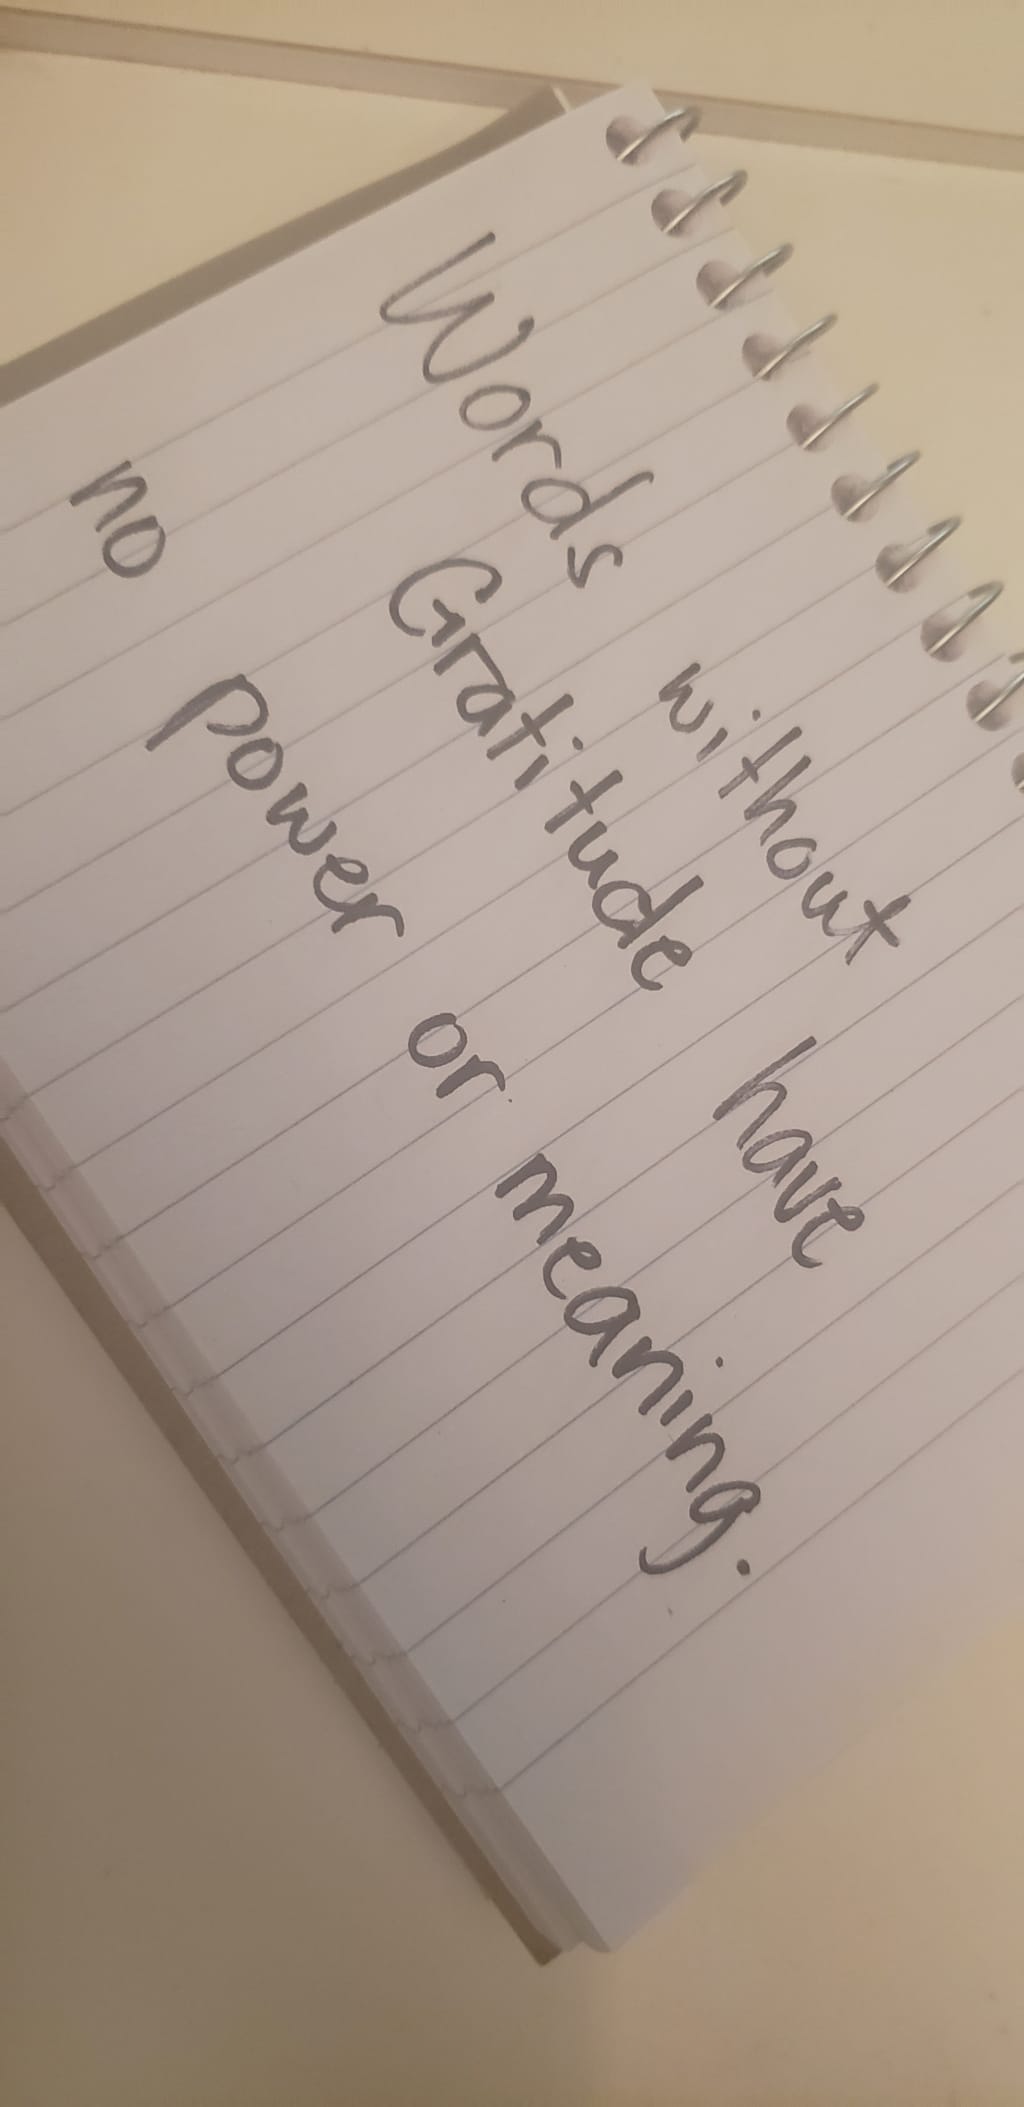 Words without
Gratitude have
no power or meaning.